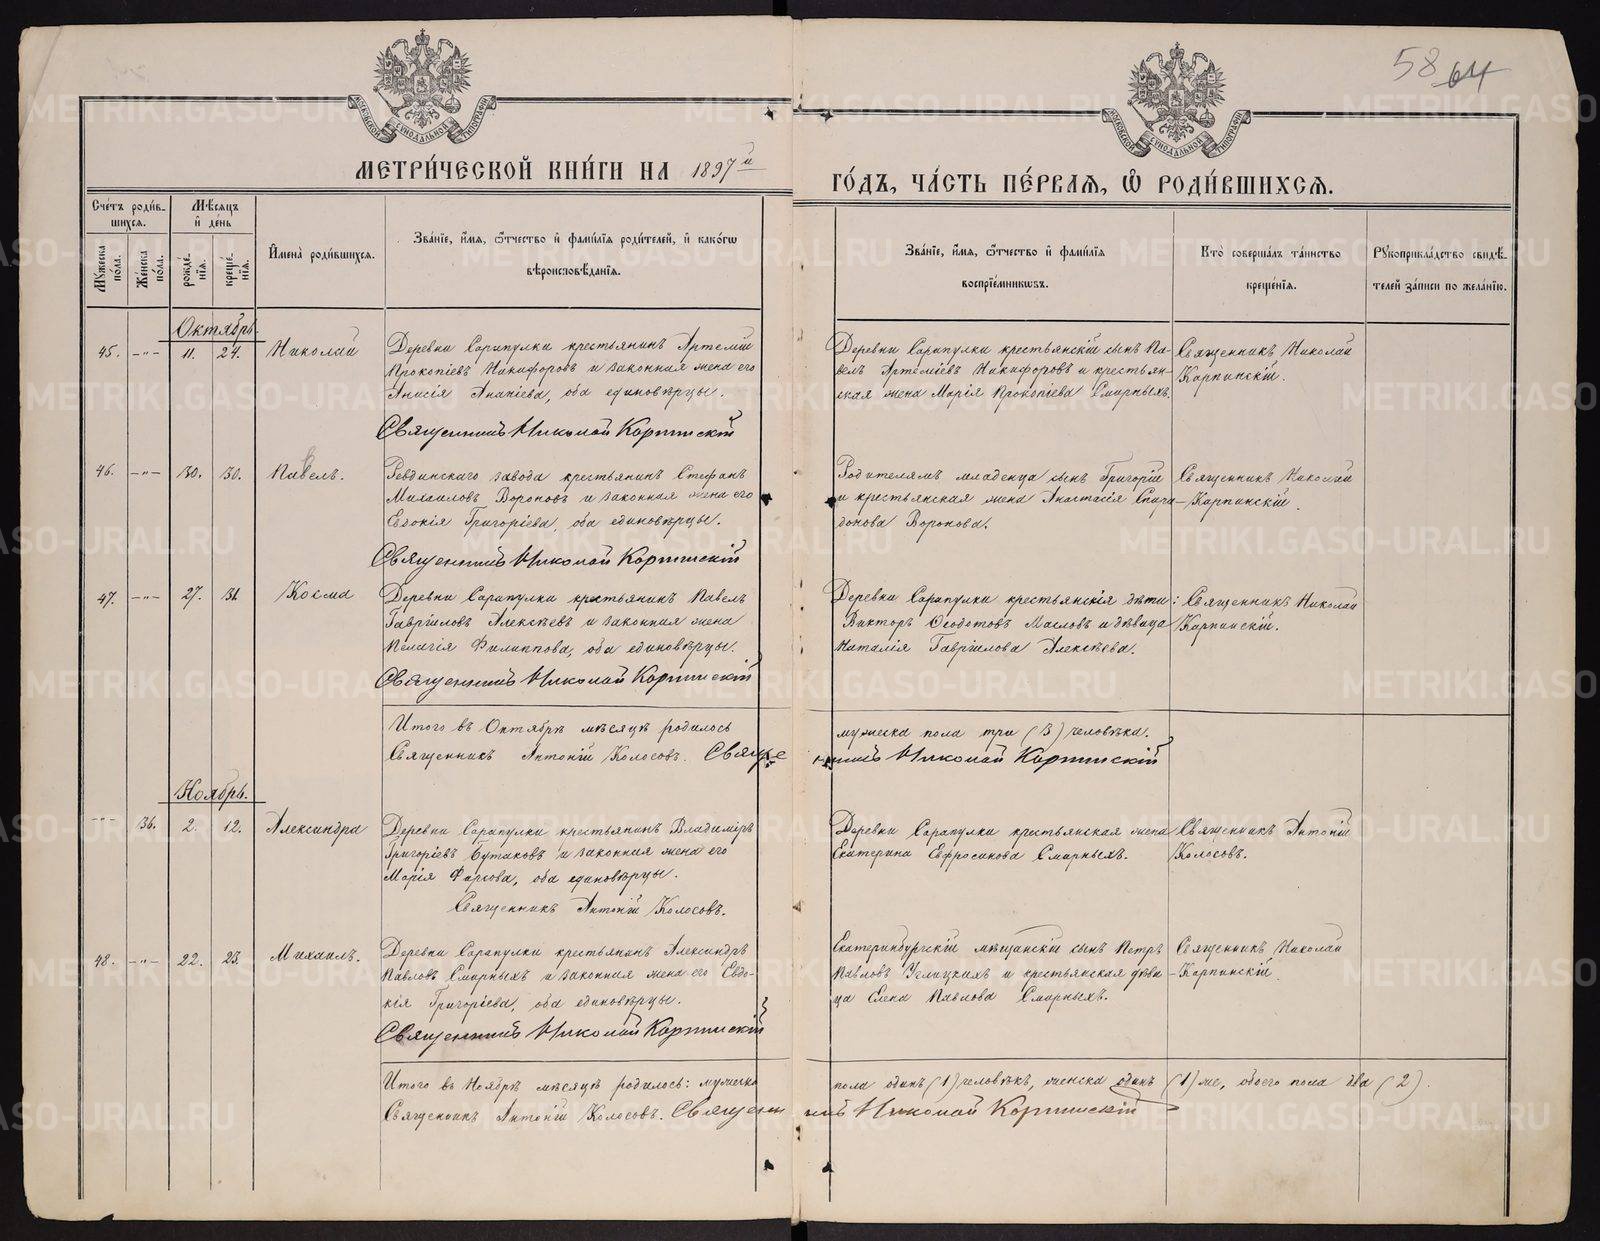 58 64
МОСКОВСКОЙ СѴНОДАЛЬНОЙ ТИПОГРАФІИ
МОСКОВСКОЙ СѴНОДАЛЬНОЙ ТИПОГРАФІИ
МЕТРИ́ЧЕСКОЙ КНИ́ГИ НА 1897й
ГО́ДЪ, ЧА́СТЬ ПЕ́РВАѦ, Ѽ РОДИ́ВШИХСѦ.
Сче́тъ роди́в-
шихся.
Мѣ́сяцъ
и҆ де́нь
Мꙋ́жеска пола.
Же́нска по́ла.
рожде́-
нїя.
креще́-
нїя.
И҆мена̀ роди́вшихся.
Зва́нїе, и҆́мя, ѻ҆́тчество и҆ фами́лїя роди́телей, и҆ како́гѡ
вѣроисповѣ́данїя.
Зва́нїе, и҆́мя, ѻ҆́тчество и҆ фами́лїя
воспрїе́мникѡвъ.
Кто̀ соверша́лъ та́инство
креще́нїя.
Рꙋкоприкла́дство свидѣ́-
телей за́писи по жела́нїю.
Октябрь.
45. —„— 11. 24. Николай
Деревни Сарапулки крестьянинъ Артемій
Прокопіевъ Никифоровъ и законная жена его
Анисія Ананіева, оба единовѣрцы.
Священникъ Николай Карпинскій
Деревни Сарапулки крестьянскій сынъ Па-
велъ Артеміевъ Никифоровъ и крестьян-
ская жена Марія Прокопіева Смирныхъ.
Священникъ Николай
Карпинскій.
46. —„— 30. 30. Павелъ.
Ревдинскаго завода крестьянинъ Стефанъ
Михаиловъ Вороновъ и законная жена его
Евдокія Григоріева, оба единовѣрцы.
Священникъ Николай Карпинскій
Родителямъ младенца сынъ Григорій
и крестьянская жена Анастасія Спири-
донова Воронова.
Священникъ Николай
Карпинскій.
47. —„— 27. 31. Косма
Деревни Сарапулки крестьянинъ Павелъ
Гавріиловъ Алексѣевъ и законная жена
Пелагія Филиппова, оба единовѣрцы.
Священникъ Николай Карпинскій
Деревни Сарапулки крестьянскія дѣти:
Викторъ Ѳеодотовъ Масловъ и дѣвица
Наталія Гавріилова Алексѣева.
Священникъ Николай
Карпинскій.
Итого въ Октябрѣ мѣсяцѣ родилось мужеска пола три (3) человѣка.
Священникъ Антоній Колосовъ. Священникъ Николай Карпинскій
Ноябрь.
—„— 36. 2. 12. Александра
Деревни Сарапулки крестьянинъ Владиміръ
Григоріевъ Бутаковъ и законная жена его
Марія Фирсова, оба единовѣрцы.
Священникъ Антоній Колосовъ.
Деревни Сарапулки крестьянская жена
Екатерина Ефросинова Смирныхъ.
Священникъ Антоній
Колосовъ.
48. —„— 22. 23. Михаилъ.
Деревни Сарапулки крестьянинъ Александръ
Павловъ Смирныхъ и законная жена его Евдо-
кія Григоріева, оба единовѣрцы.
Священникъ Николай Карпинскій
Екатеринбургскій мѣщанскій сынъ Петръ
Павловъ Углицкихъ и крестьянская дѣви-
ца Елена Павлова Смирныхъ.
Священникъ Николай
Карпинскій.
Итого въ Ноябрѣ мѣсяцѣ родилось: мужеска пола одинъ (1) человѣкъ, женска одинъ (1) же, обоего пола два (2).
Священникъ Антоній Колосовъ. Священникъ Николай Карпинскій
METRIKI.GASO-URAL.RU